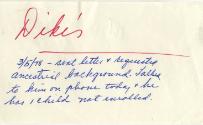 Dike's
3/5/78 - sent letter & requested
ancestral background. Talked
to him on phone today & he
has 1 child not enrolled.